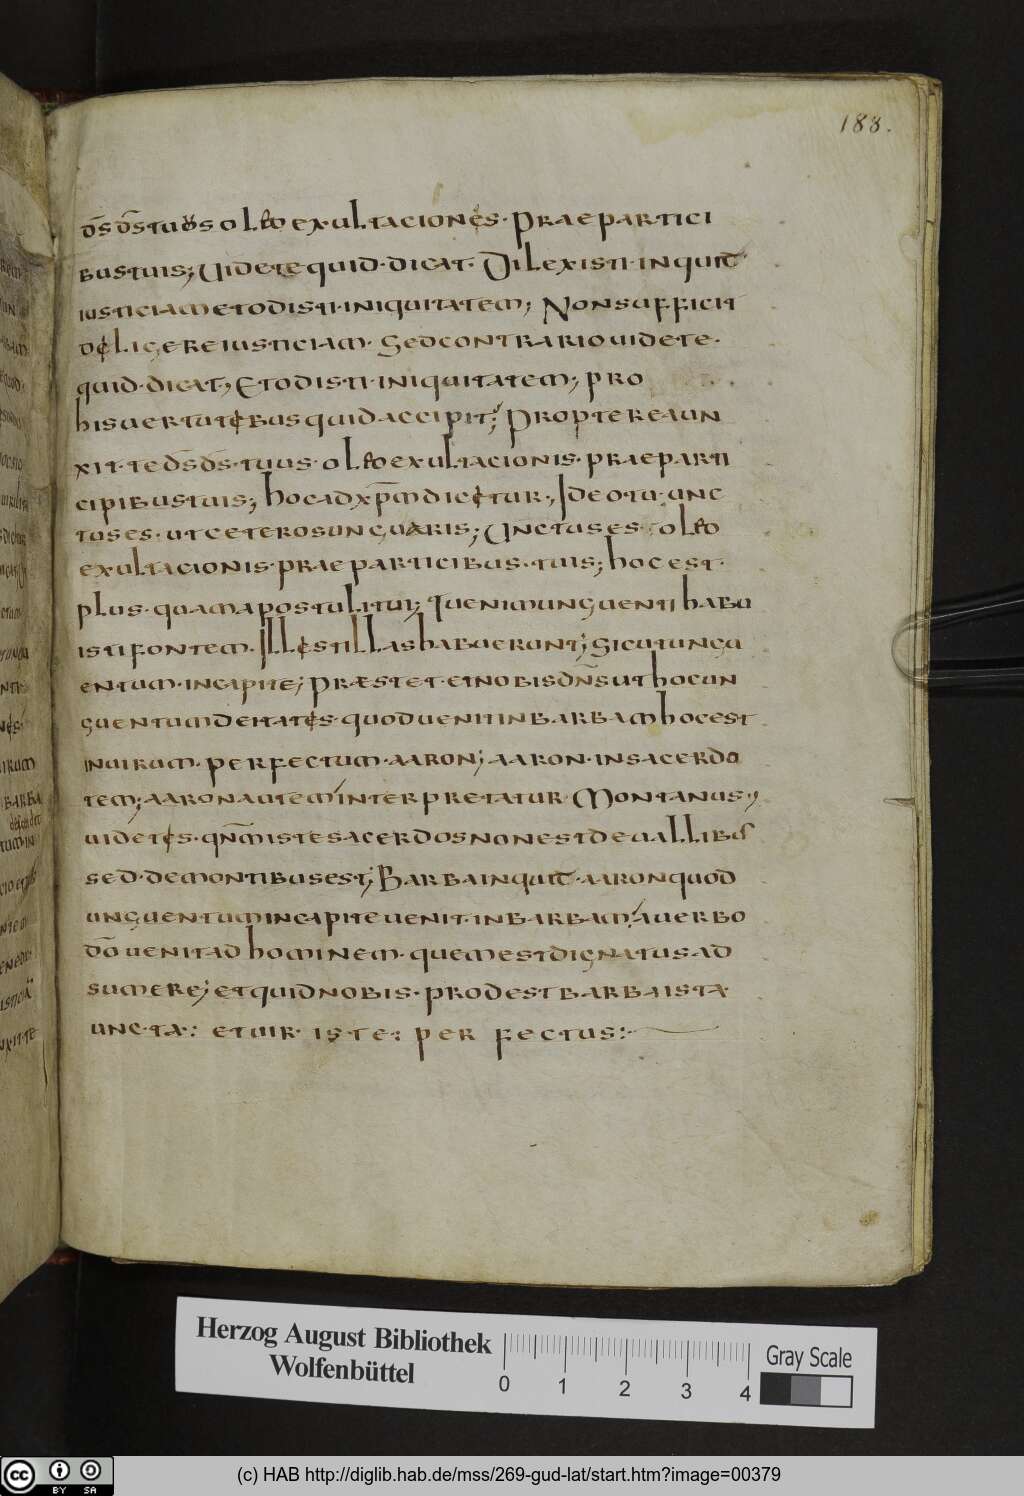 188.
d̄s d̄s tuus oleo exultaciones· praepartici
bus tuis; Uidete quid· dicat· Dilexisti· inquid
iusticiam et odisti· iniquitatem; Non sufficit
deligere iusticiam· Sed contrario uidete·
quid· dicat; Et odisti· iniquitatem; pro
his uertutebus quid accipit; Propterea un
xit· te d̄s d̄s· tuus· oleo exultacionis· praeparti
cipibus tuis; hoc ad xp̄m dicetur·, Ideo tu· unc
tus es· ut ceteros unguaris; Unctus es· oleo
exultacionis· prae participibus· tuis; hoc est·
plus· quam apostuli tui; Qu enim unguenti habu
isti fontem· Ille stillas habuerunt; Sicut ungu
entum· in capite; praestet· et nobis dn̄s ut hoc un
guentum deitates· quod uenit in barbam hoc est
in uirum· perfectum· aaron; aaron· in sacerdo
tem; aaron autem interpretatur· Montanus·,
uidetes· qnm̄ iste sacerdos non est de uallibus
sed· de montibus est; Barba inquid· aaron quod
unguentum in capite uenit· in barbam; a uerbo
dō uenit ad hominem· quem est dignatus· ad
sumere; et quid nobis· prodest barba ista
uncta: et uir iste: perfectus:·
Herzog August Bibliothek
Wolfenbüttel
0 1 2 3 4
Gray Scale
cc BY SA
(c) HAB http://diglib.hab.de/mss/269-gud-lat/start.htm?image=00379